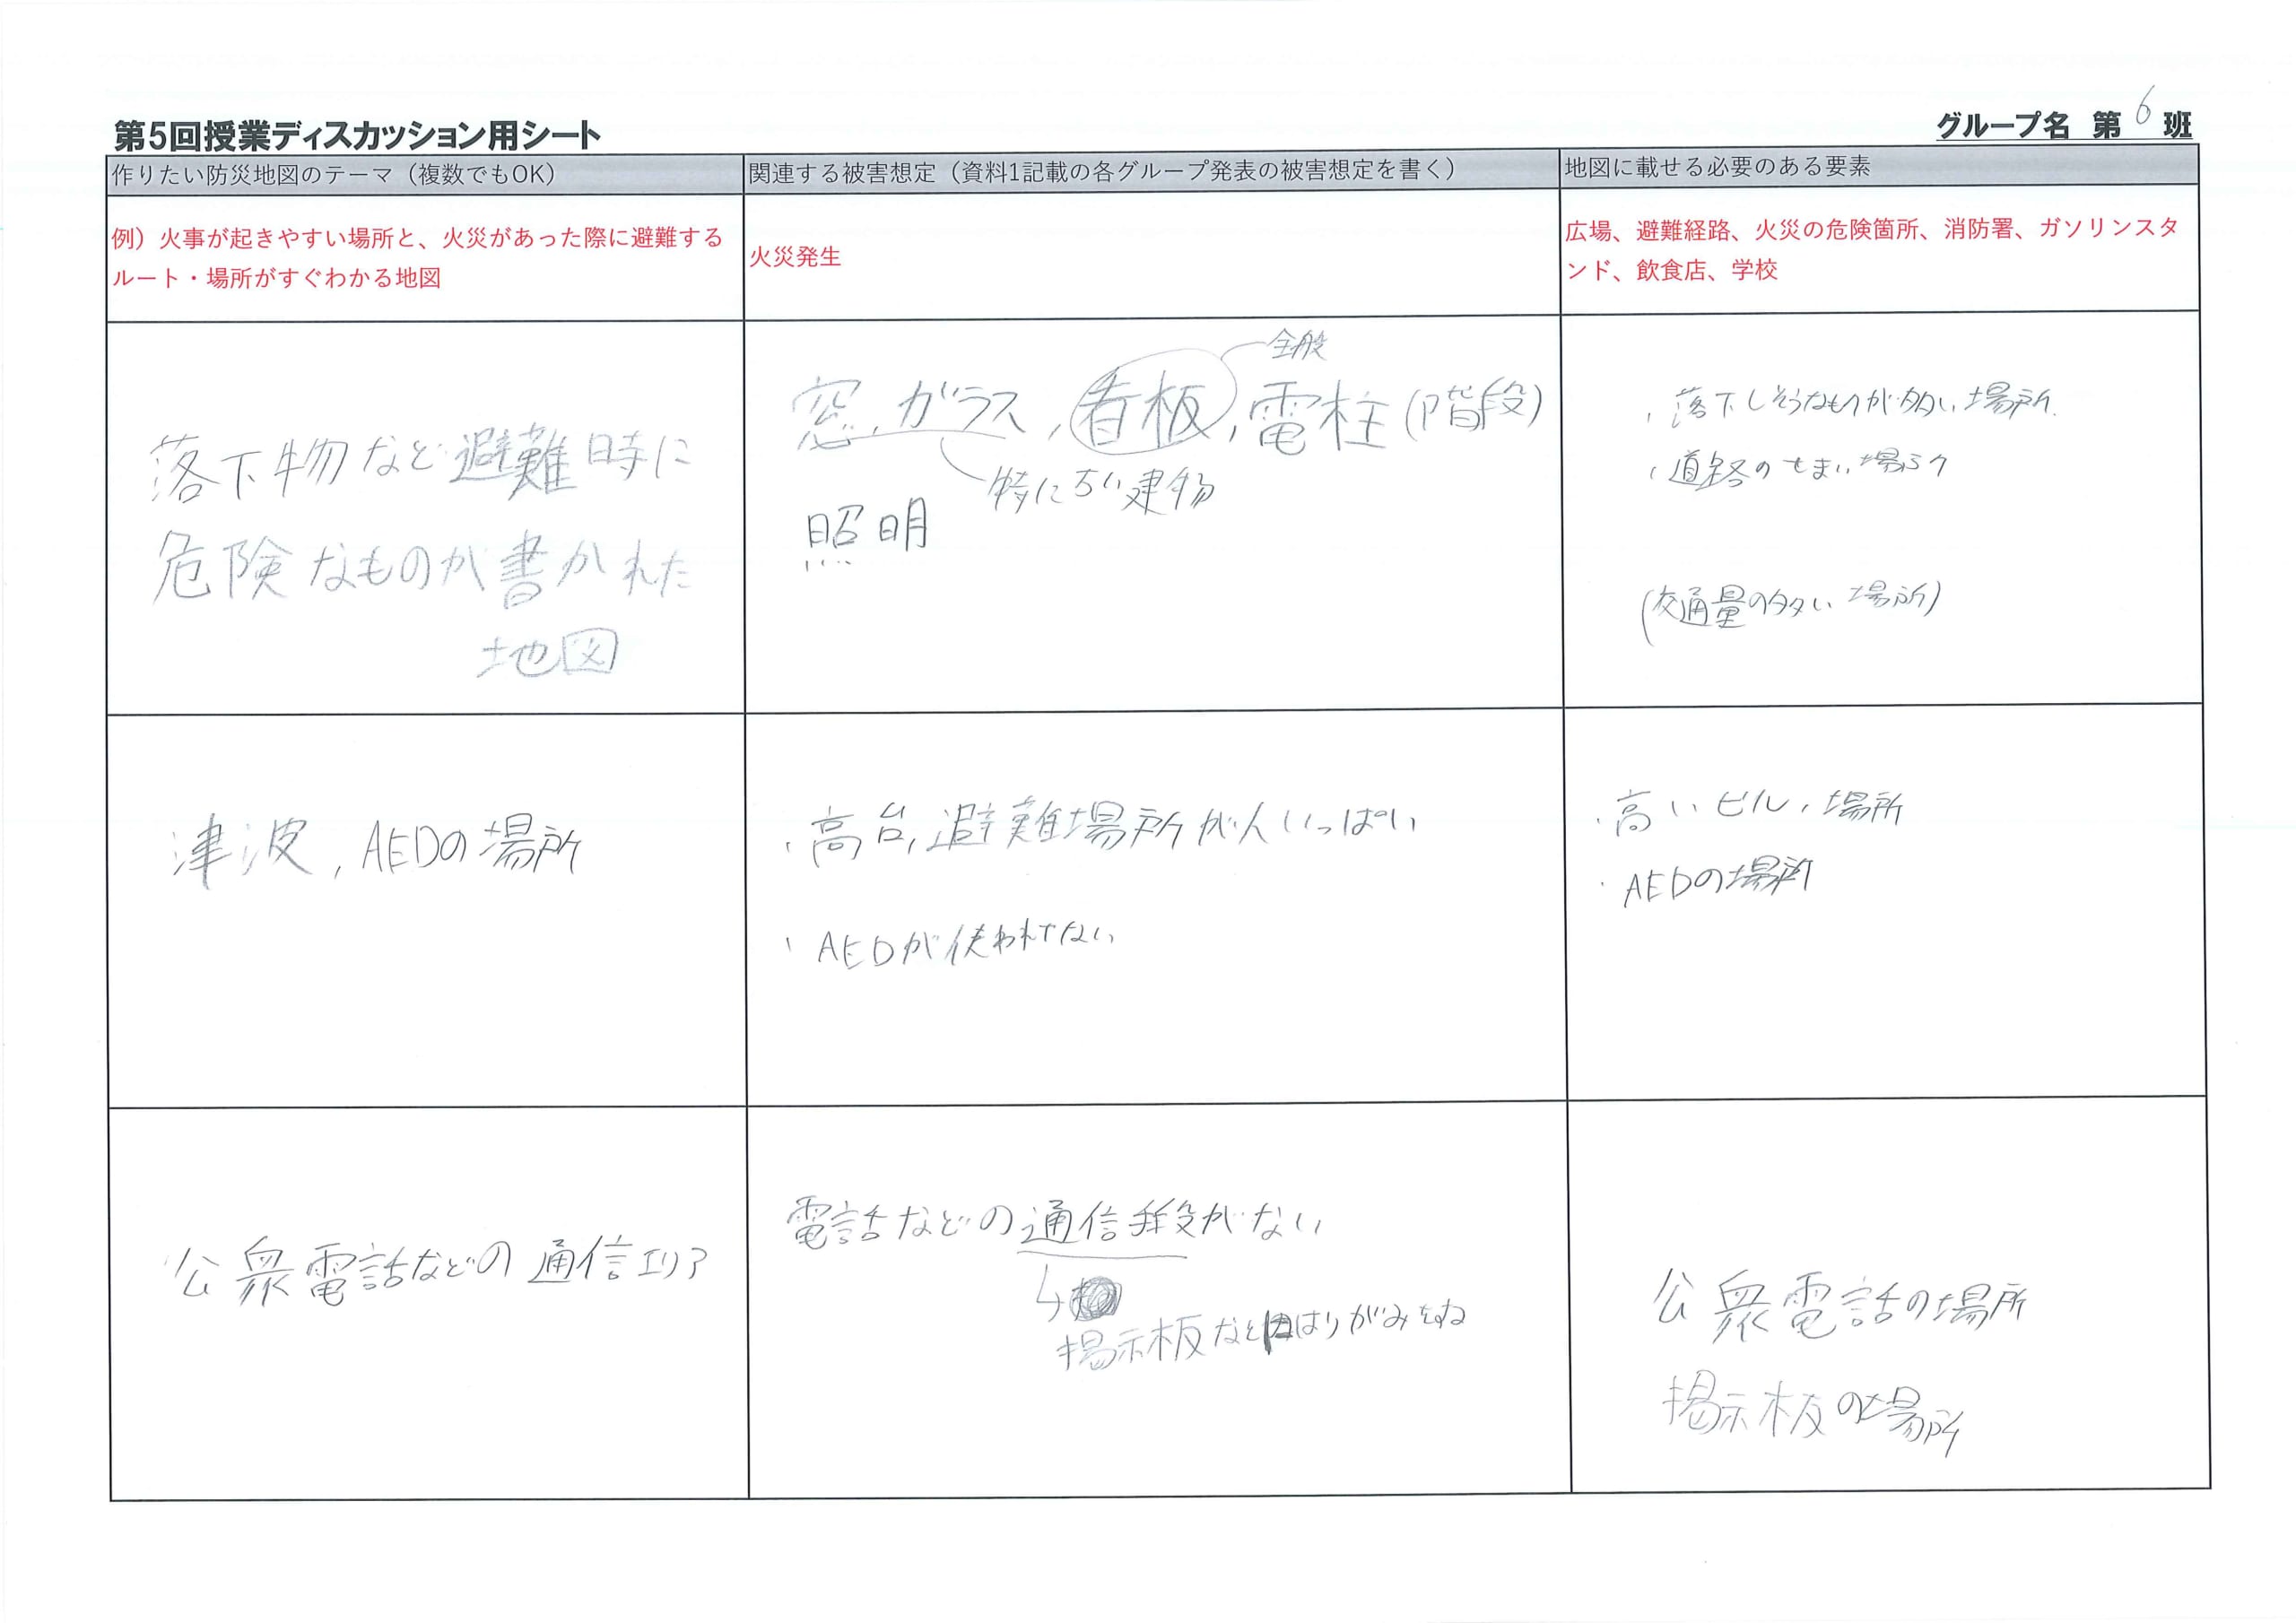 第5回授業ディスカッション用シート
グループ名 第 6 班
作りたい防災地図のテーマ（複数でもOK）
関連する被害想定（資料1記載の各グループ発表の被害想定を書く）
地図に載せる必要のある要素
例）火事が起きやすい場所と、火災があった際に避難する
ルート・場所がすぐわかる地図
火災発生
広場、避難経路、火災の危険箇所、消防署、ガソリンスタ
ンド、飲食店、学校
落下物など避難時に
危険なものが書かれた
地図
全般
窓,ガラス,看板,電柱(階段)
特に古い建物
照明
・落下しそうなものが多い場所.
・道路のせまい場所
(交通量の多い場所)
津波,AEDの場所
・高台,避難場所が人いっぱい
・AEDが使われてない
・高いビル,場所
・AEDの場所
公衆電話などの通信エリア
電話などの通信手段がない
↳
掲示板などにはりがみをする
公衆電話の場所
掲示板の場所